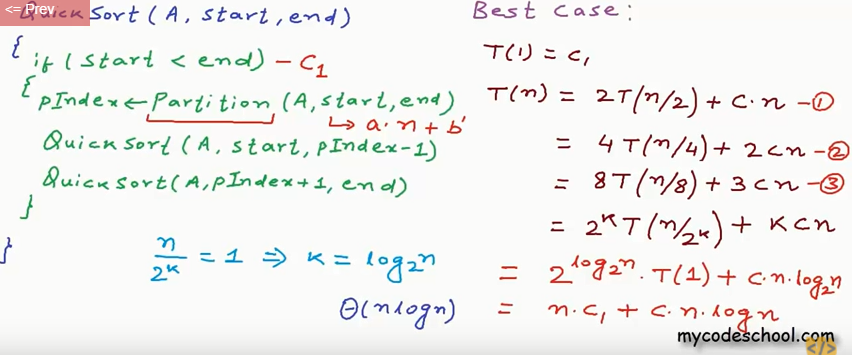 <= Prev
QuickSort(A, start, end)
{
if (start < end) - C₁
{
pIndex ← Partition (A, start, end)
↳ a·n + b'
QuickSort (A, start, pIndex-1)
QuickSort(A, pIndex+1, end)
}
}
n/2ᴷ = 1 ⇒ K = log₂n
Θ(n log n)
Best Case:
T(1) = c₁
T(n) = 2T(n/2) + c·n - ①
= 4T(n/4) + 2cn - ②
= 8T(n/8) + 3cn - ③
= 2ᴷT(n/2ᴷ) + Kcn
= 2^log₂n · T(1) + c·n·log₂n
= n·c₁ + c·n·log n
mycodeschool.com
</>